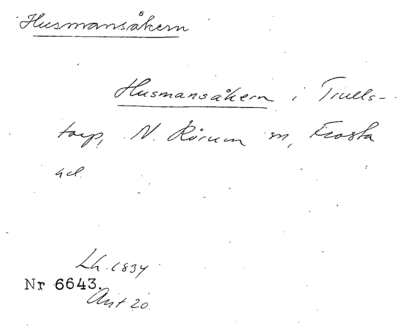 Husmansåkern
Husmansåkern i Trulls-
torp, N. Rörum sn, Frosta
hd.
Lh. 1834
Nr 6643.
Akt 20.